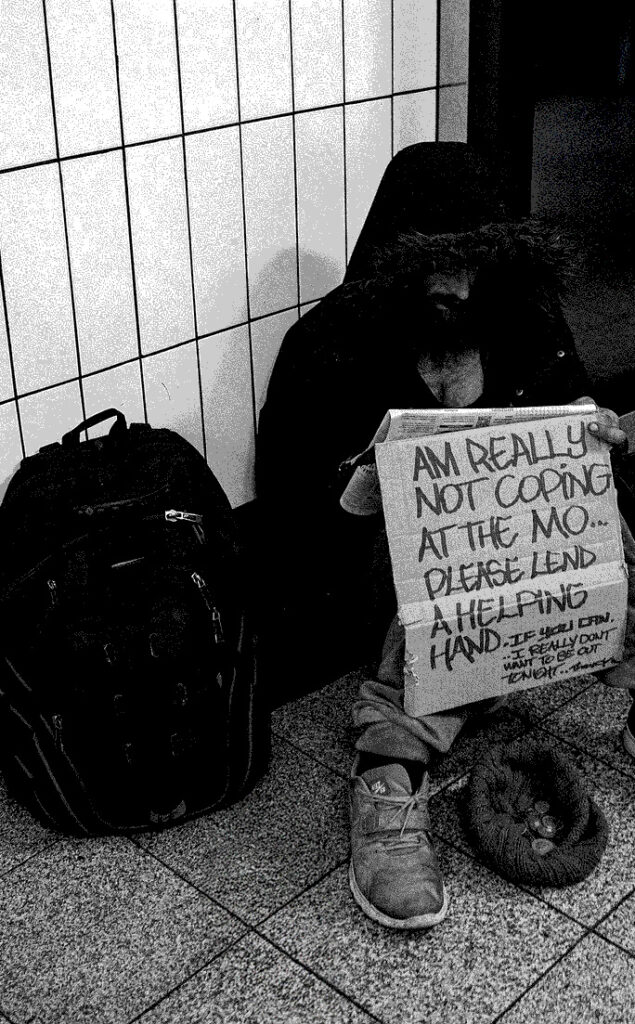 AM REALLY
NOT COPING
AT THE MO...
PLEASE LEND
A HELPING
HAND..IF YOU CAN.
..I REALLY DON'T
WANT TO BE OUT
TONIGHT..